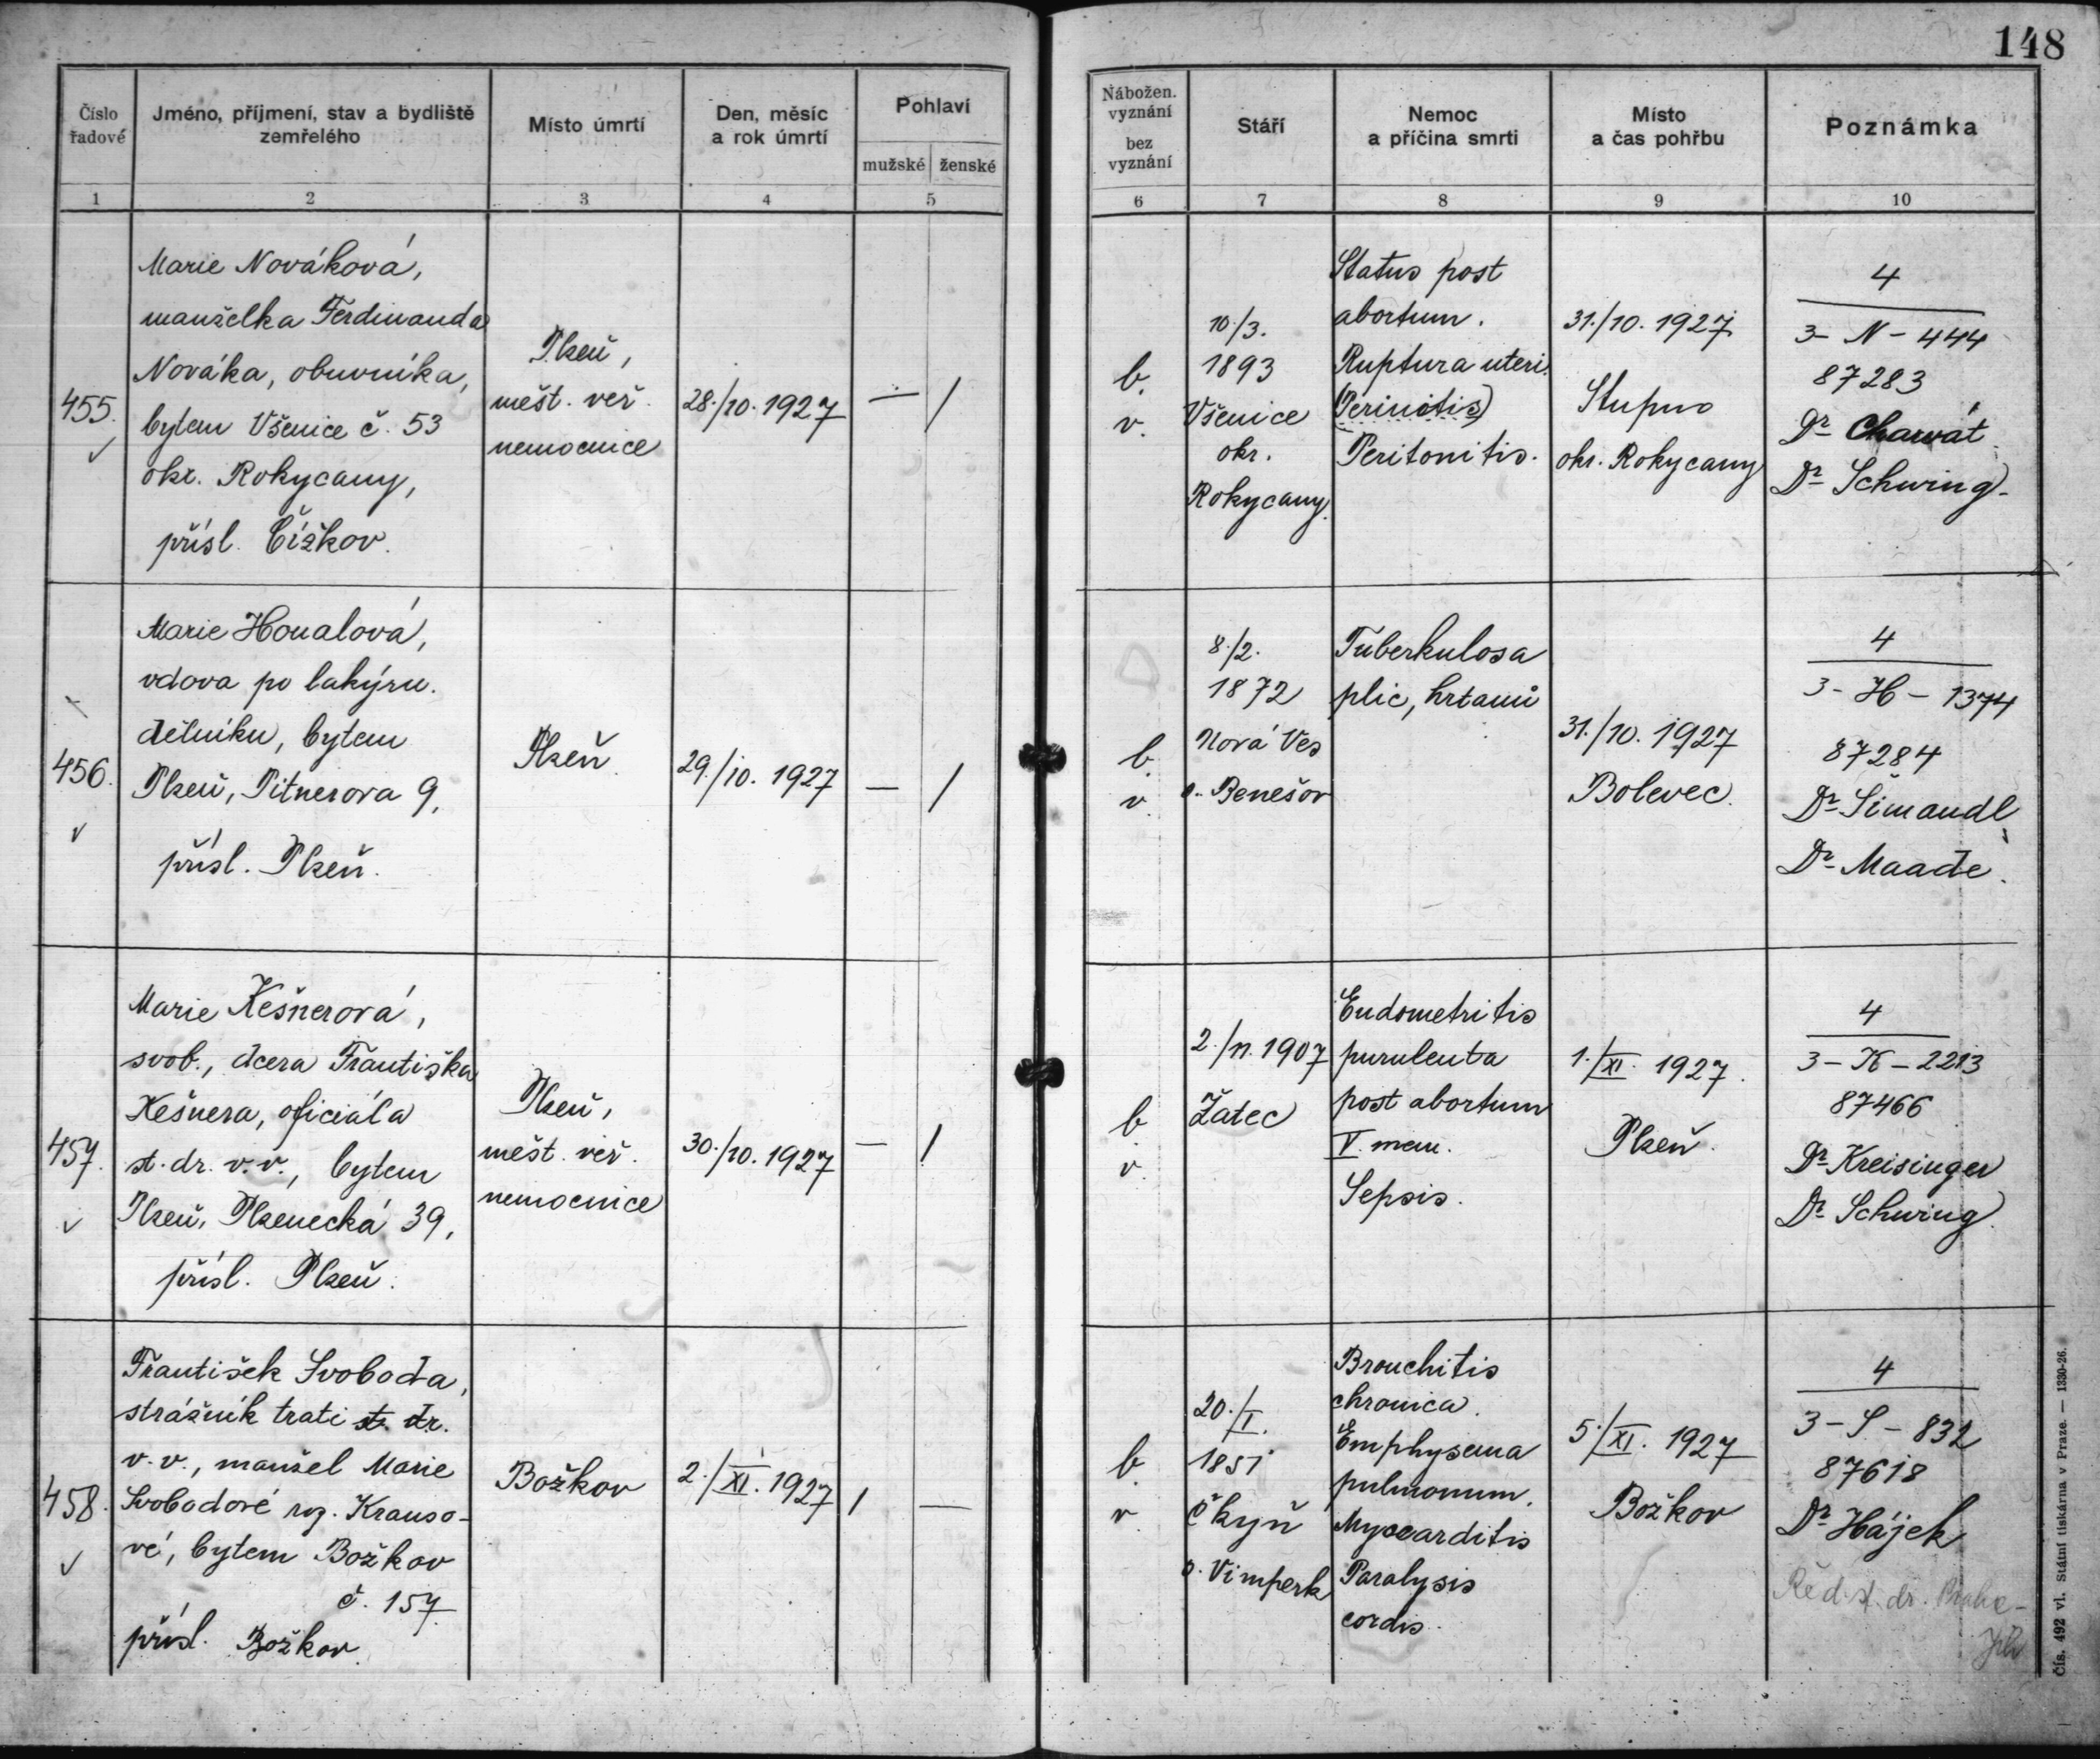 148
Číslo
řadové
Jméno, příjmení, stav a bydliště
zemřelého
Místo úmrtí
Den, měsíc
a rok úmrtí
Pohlaví
mužské
ženské
Nábožen.
vyznání
bez
vyznání
Stáří
Nemoc
a příčina smrti
Místo
a čas pohřbu
Poznámka
1
2
3
4
5
6
7
8
9
10
455.
Marie Nováková,
manželka Ferdinanda
Nováka, obuvníka,
bytem Všenice č. 53
okr. Rokycany,
přísl. Čížkov.
Plzeň,
měšt. veř.
nemocnice
28./10. 1927
—
/
b.
v.
10./3.
1893
Všenice
okr.
Rokycany.
Status post
abortum.
Ruptura uteri.
(Perinotis)
Peritonitis.
31./10. 1927
Stupno
okr. Rokycany
4
3 - N - 444
87283
Dr Charvát
Dr Schwing.
456.
Marie Houalová,
vdova po lakýrn.
dělníku, bytem
Plzeň, Pitnerova 9,
přísl. Plzeň.
Plzeň
29./10. 1927
—
/
b.
v.
8./2.
1872
Nová Ves
o. Benešov
Tuberkulosa
plic, hrtanu
31./10. 1927
Bolevec.
4
3 - H - 1374
87284
Dr Šimandl
Dr Maade.
457.
Marie Kešnerová,
svob., dcera Františka
Kešnera, oficiála
st. dr. v. v., bytem
Plzeň, Plzenecká 39,
přísl. Plzeň.
Plzeň,
měšt. veř.
nemocnice
30./10. 1927
—
/
b.
v.
2./11. 1907
Žatec
Endometritis
purulenta
post abortum
V. men.
Sepsis.
1./XI. 1927.
Plzeň.
4
3 - K - 2213
87466
Dr Kreisinger
Dr Schwing.
458.
František Svoboda,
strážník trati st. dr.
v. v., manžel Marie
Svobodové roz. Krauso-
vé, bytem Božkov
č. 157
přísl. Božkov.
Božkov
2./XI. 1927
/
—
b.
v.
20./I.
1851
Čkyň
o. Vimperk
Bronchitis
chronica.
Emphysema
pulmonum.
Myocarditis
Paralysis
cordis.
5./XI. 1927
Božkov
4
3 - S - 832
87618
Dr Hájek
Řed. st. dr. Praha-
Čís. 492 vl. Státní tiskárna v Praze. — 1330-26.